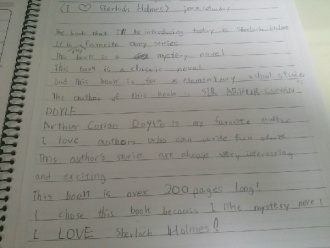 (I ♡ Sherlock Holmes)
The book that I'm introducing today is Sherlock Holmes
It is favorite story series
The book is a mystery novel
This book is a classic novel
but this book is for elementary school student
The author of this book SIR ARTHUR CONAN
DOYLE
Arthur Conan Doyle is my favorite author
I love authors who can write like
This author's stories are always very interesting
and exciting
This book is over 200 pages long!
I chose this book because I like mystery more!
I LOVE Sherlock Holmes!